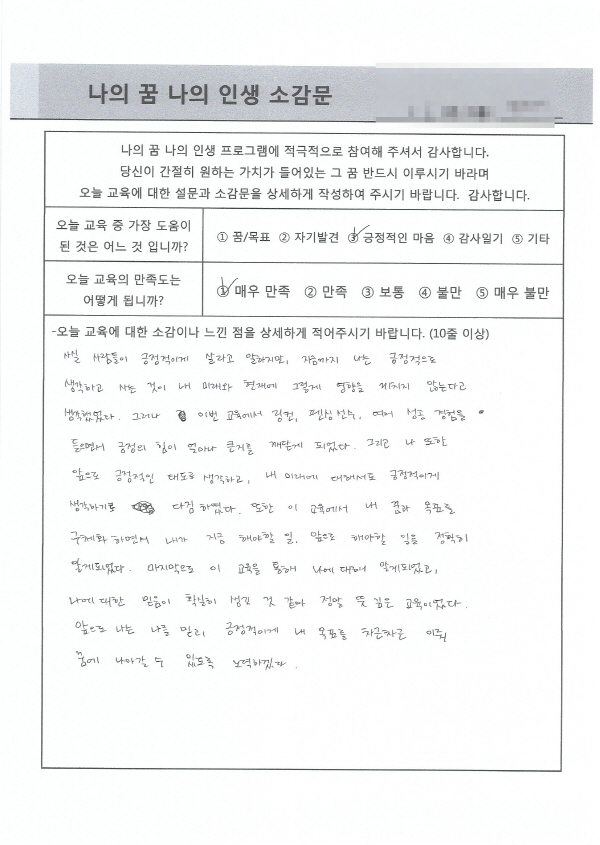 나의 꿈 나의 인생 소감문
나의 꿈 나의 인생 프로그램에 적극적으로 참여해 주셔서 감사합니다.
당신이 간절히 원하는 가치가 들어있는 그 꿈 반드시 이루시기 바라며
오늘 교육에 대한 설문과 소감문을 상세하게 작성하여 주시기 바랍니다. 감사합니다.
오늘 교육 중 가장 도움이
된 것은 어느 것 입니까?
① 꿈/목표 ② 자기발견 ③ 긍정적인 마음 ④ 감사일기 ⑤ 기타
오늘 교육의 만족도는
어떻게 됩니까?
① 매우 만족 ② 만족 ③ 보통 ④ 불만 ⑤ 매우 불만
-오늘 교육에 대한 소감이나 느낀 점을 상세하게 적어주시기 바랍니다. (10줄 이상)
사실 사람들이 긍정적이게 살라고 말하지만, 지금까지 나는 긍정적으로
생각하고 사는 것이 내 미래와 현재에 그렇게 영향을 끼치지 않는다고
생각했었다. 그러나 이번 교육에서 링컨, 펜싱선수, 여러 성공 경험을
들으면서 긍정의 힘이 얼마나 큰지를 깨닫게 되었다. 그리고 나 또한
앞으로 긍정적인 태도로 생각하고, 내 미래에 대해서도 긍정적이게
생각하기로 다짐하였다. 또한 이 교육에서 내 꿈과 목표를
구체화 하면서 내가 지금 해야할 일, 앞으로 해야할 일을 정확히
알게되었다. 마지막으로 이 교육을 통해 나에 대해 알게되었고,
나에 대한 믿음이 확실히 생긴 것 같아 정말 뜻 깊은 교육이었다.
앞으로 나는 나를 믿고, 긍정적이게 내 목표를 차근차근 이뤄
꿈에 나아갈 수 있도록 노력하겠다.